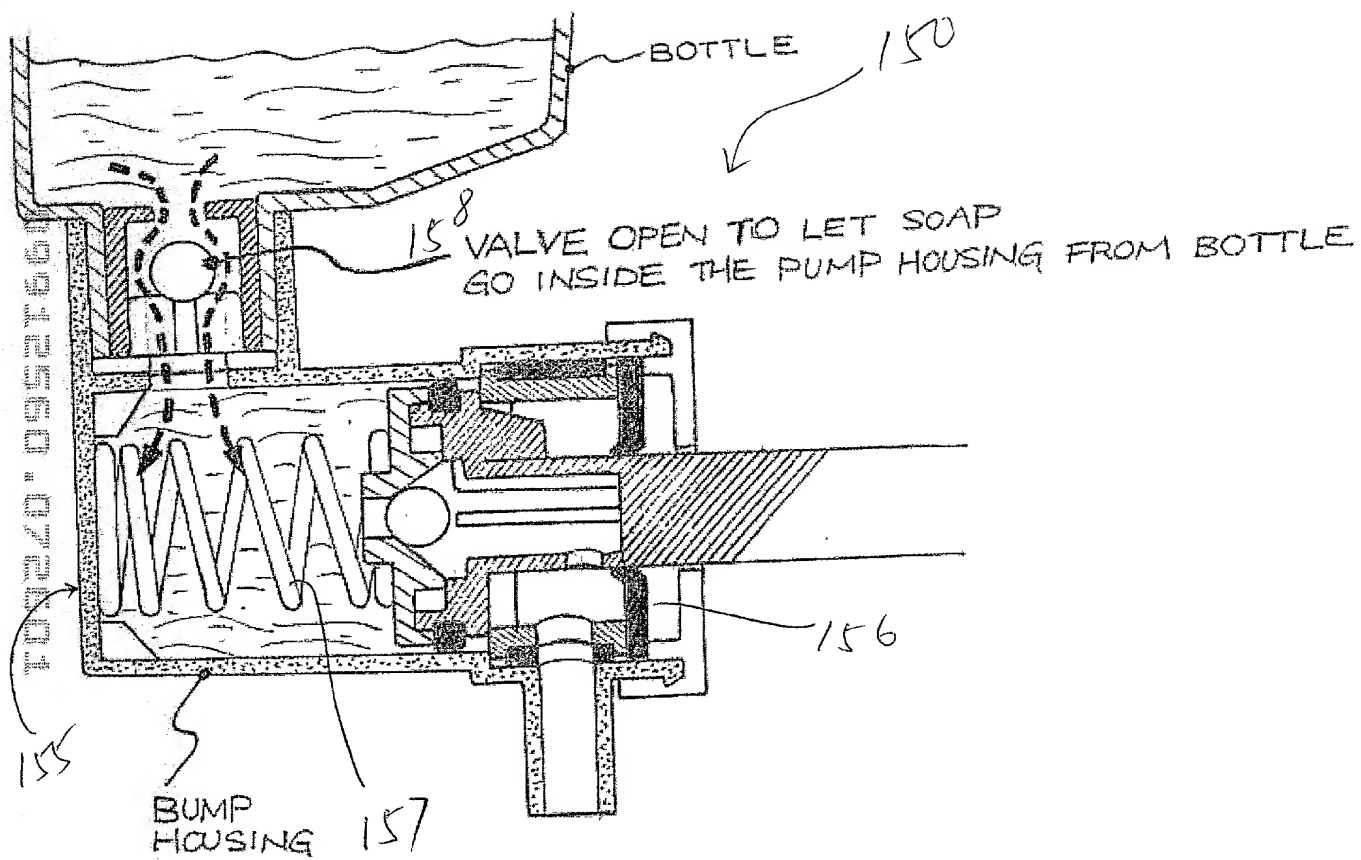 BOTTLE
150
158
VALVE OPEN TO LET SOAP
GO INSIDE THE PUMP HOUSING FROM BOTTLE
156
155
BUMP
HOUSING
157